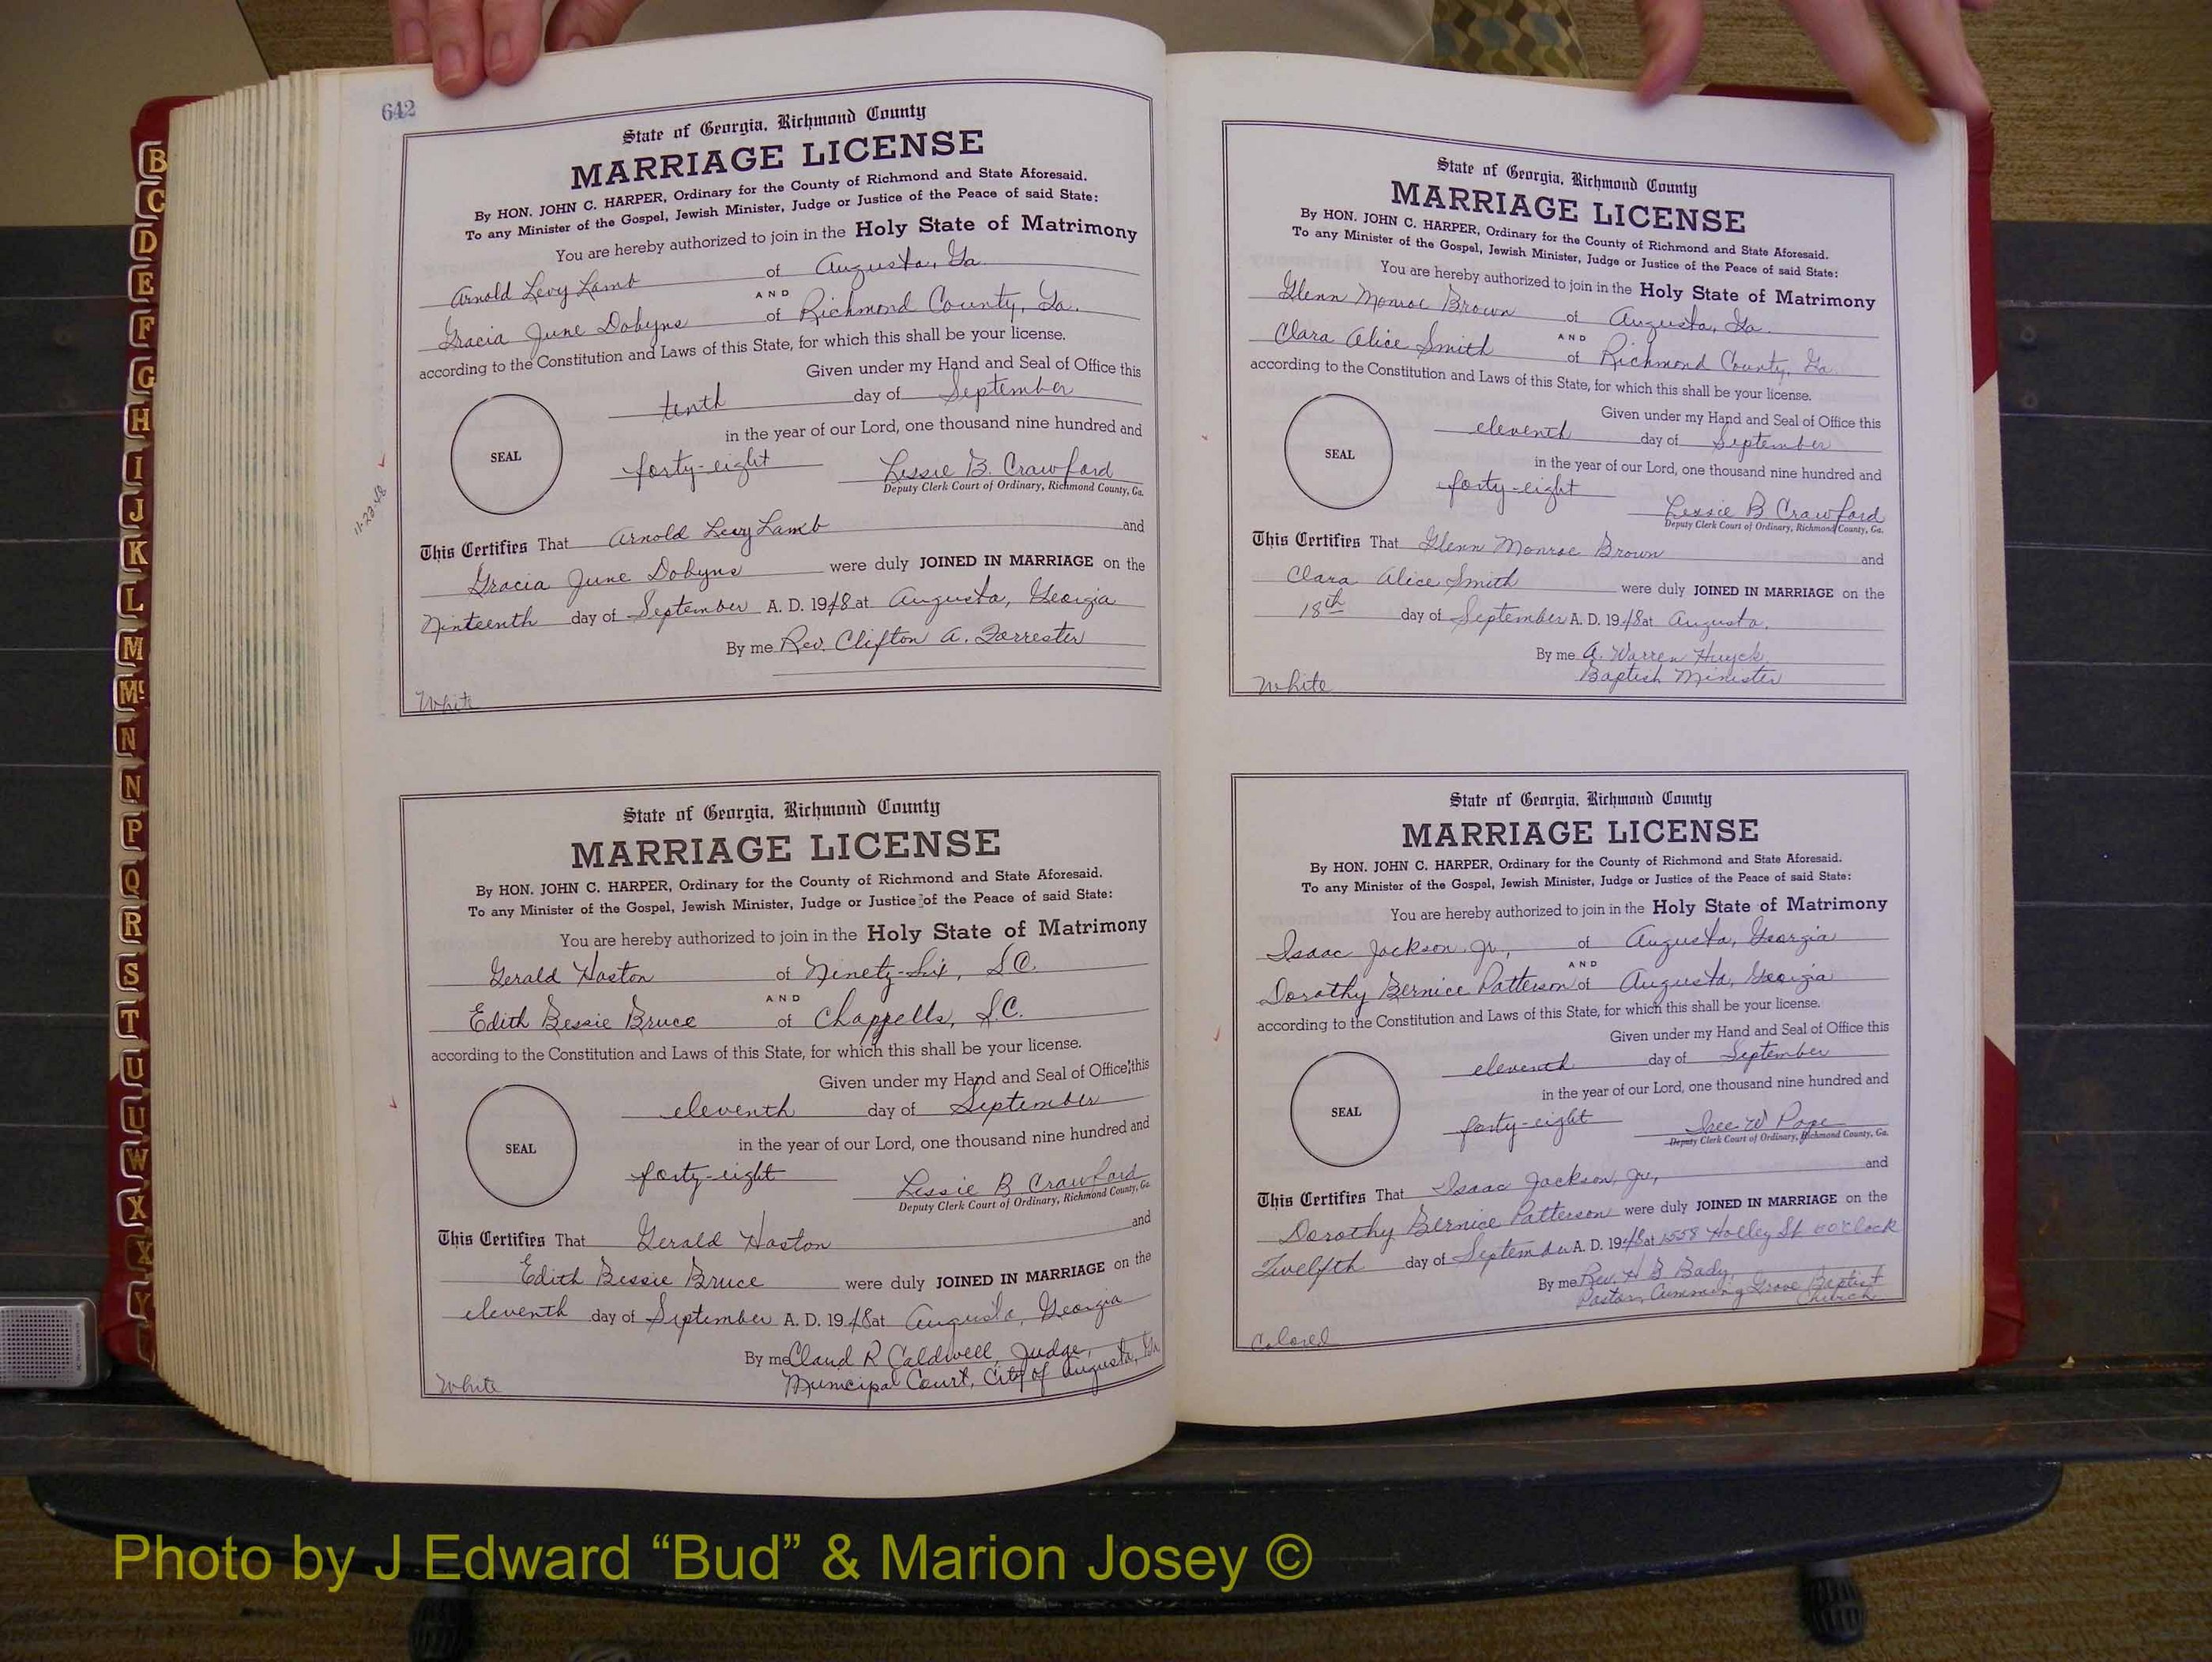 642
State of Georgia, Richmond County
MARRIAGE LICENSE
By HON. JOHN C. HARPER, Ordinary for the County of Richmond and State Aforesaid.
To any Minister of the Gospel, Jewish Minister, Judge or Justice of the Peace of said State:
You are hereby authorized to join in the Holy State of Matrimony
Arnold Levy Lamb of Augusta, Ga.
AND
Gracia June Dobyns of Richmond County, Ga.
according to the Constitution and Laws of this State, for which this shall be your license.
Given under my Hand and Seal of Office this
tenth day of September
in the year of our Lord, one thousand nine hundred and
SEAL
forty-eight Lessie B. Crawford
Deputy Clerk Court of Ordinary, Richmond County, Ga.
11-23-48
This Certifies That Arnold Levy Lamb and
Gracia June Dobyns were duly JOINED IN MARRIAGE on the
Ninteenth day of September A. D. 1948 at Augusta, Georgia
By me Rev. Clifton A. Forrester
White
State of Georgia, Richmond County
MARRIAGE LICENSE
By HON. JOHN C. HARPER, Ordinary for the County of Richmond and State Aforesaid.
To any Minister of the Gospel, Jewish Minister, Judge or Justice of the Peace of said State:
You are hereby authorized to join in the Holy State of Matrimony
Gerald Haston of Ninety-Six, S.C.
AND
Edith Bessie Bruce of Chappells, S.C.
according to the Constitution and Laws of this State, for which this shall be your license.
Given under my Hand and Seal of Office this
eleventh day of September
in the year of our Lord, one thousand nine hundred and
SEAL
forty-eight Lessie B Crawford
Deputy Clerk Court of Ordinary, Richmond County, Ga.
This Certifies That Gerald Haston and
Edith Bessie Bruce were duly JOINED IN MARRIAGE on the
eleventh day of September A. D. 1948 at Augusta, Georgia
By me Claud R Caldwell, Judge,
Municipal Court, City of Augusta, Ga
White
State of Georgia, Richmond County
MARRIAGE LICENSE
By HON. JOHN C. HARPER, Ordinary for the County of Richmond and State Aforesaid.
To any Minister of the Gospel, Jewish Minister, Judge or Justice of the Peace of said State:
You are hereby authorized to join in the Holy State of Matrimony
Glenn Monroe Brown of Augusta, Ga.
AND
Clara Alice Smith of Richmond County, Ga.
according to the Constitution and Laws of this State, for which this shall be your license.
Given under my Hand and Seal of Office this
eleventh day of September
in the year of our Lord, one thousand nine hundred and
SEAL
forty-eight Lessie B Crawford
Deputy Clerk Court of Ordinary, Richmond County, Ga.
This Certifies That Glenn Monroe Brown and
Clara Alice Smith were duly JOINED IN MARRIAGE on the
18th day of September A. D. 1948 at Augusta.
By me A. Warren Huyck
Baptist Minister
White
State of Georgia, Richmond County
MARRIAGE LICENSE
By HON. JOHN C. HARPER, Ordinary for the County of Richmond and State Aforesaid.
To any Minister of the Gospel, Jewish Minister, Judge or Justice of the Peace of said State:
You are hereby authorized to join in the Holy State of Matrimony
Isaac Jackson Jr., of Augusta, Georgia
AND
Dorothy Bernice Patterson of Augusta, Georgia
according to the Constitution and Laws of this State, for which this shall be your license.
Given under my Hand and Seal of Office this
eleventh day of September
in the year of our Lord, one thousand nine hundred and
SEAL
forty-eight W Pope
Deputy Clerk Court of Ordinary, Richmond County, Ga.
This Certifies That Isaac Jackson, Jr., and
Dorothy Bernice Patterson were duly JOINED IN MARRIAGE on the
Twelfth day of September A. D. 1948 at 1558 Holley St O'Clock
By me Rev. H B Bady
Pastor, Cumming Grove Baptist
Church
Colored
B
C
D
E
F
G
H
I
J
K
L
M
Mc
N
N
P
Q
R
S
T
U
U
W
X
X
Y
Photo by J Edward “Bud” & Marion Josey ©